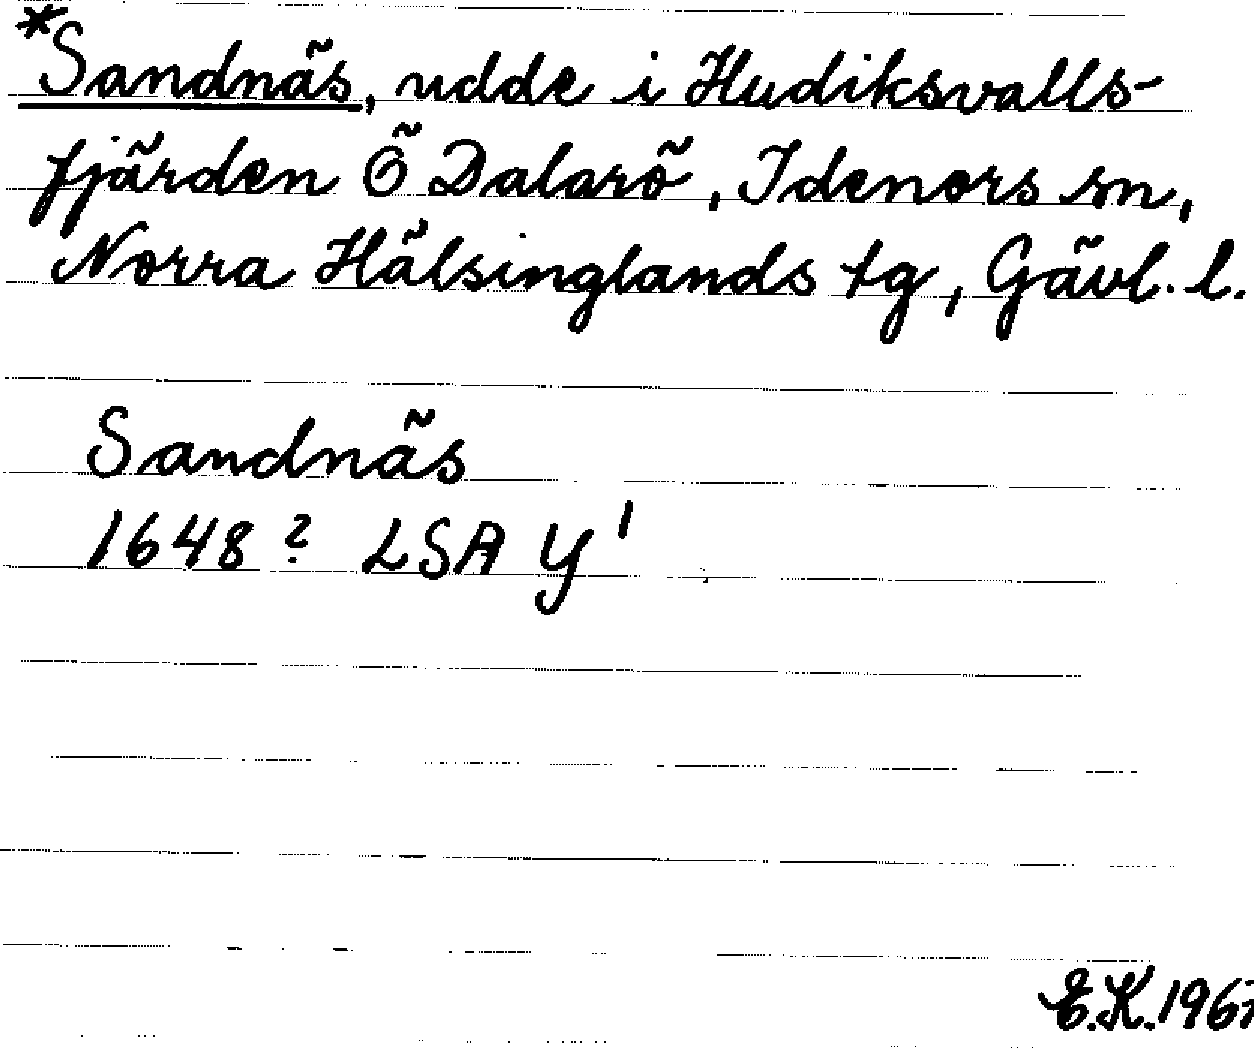 *Sandnäs, udde i Hudiksvalls-
fjärden Ö Dalarö, Idenors sn,
Norra Hälsinglands tg, Gävl. l.
Sandnäs
1648? LSA Y 1
E.K. 1967